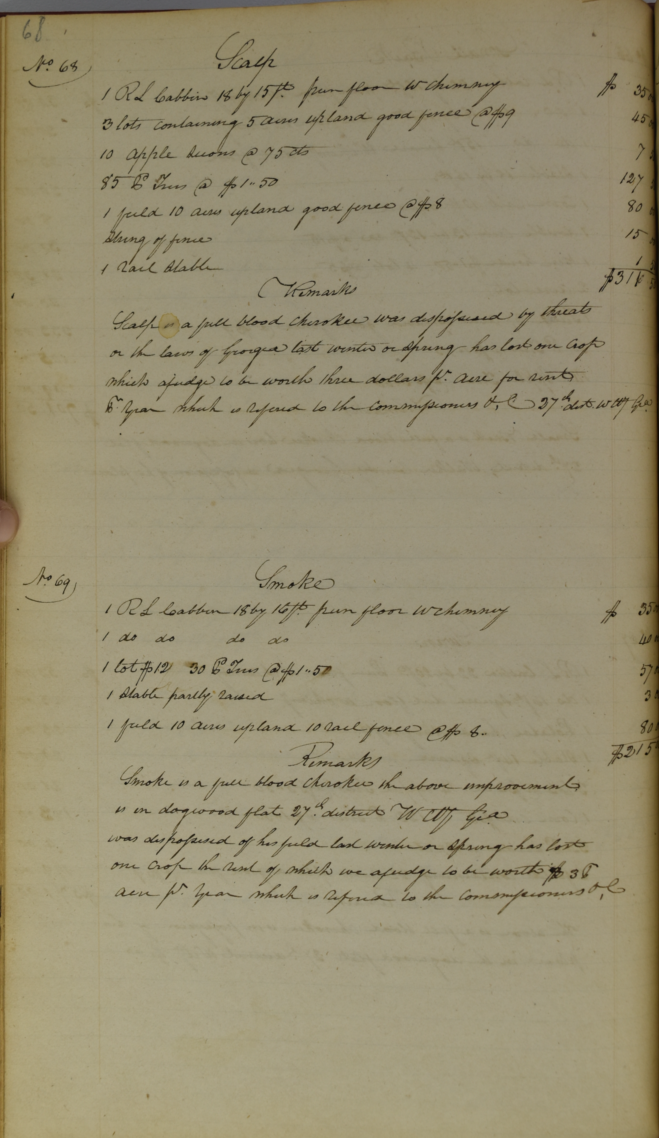 68
No 68
Scalp
1 R L Cabbin 18 by 15 ft. pun floor W chimney $ 35
3 lots containing 5 acres upland good fence @ $9 45
10 apple @ 75 cts 7
85 P Trees @ $1-50 127
1 field 10 acres upland good fence @ $8 80
String of fence 15
1 rail stable 1
$31
Remarks
Scalp is a full blood Cherokee was dispossessed by threats
or the laws of Georgia last winter or spring has lost one crop
which ajudge to be worth three dollars pr. acre for rent
Pr Year which is refered to the commissioners &, C 27th dist. W Cty Ga
No 69
Smoke
1 R L Cabbin 18 by 16 ft. pun floor W chimney $ 35
1 do do do do 40
1 lot $12 30 P Trees @ $1-50 57
1 Stable partly raised 3
1 field 10 acres upland 10 rail fence @ $8. 80
$215
Remarks
Smoke is a full blood Cherokee the above improvement
is in dogwood flat 27th. district W Cty Ga
was dispossesed of his field last winter or Spring has lost
one crop the rent of which we ajudge to be worth $3 Pr
acre pr. Year which is refered to the commissioners &, C